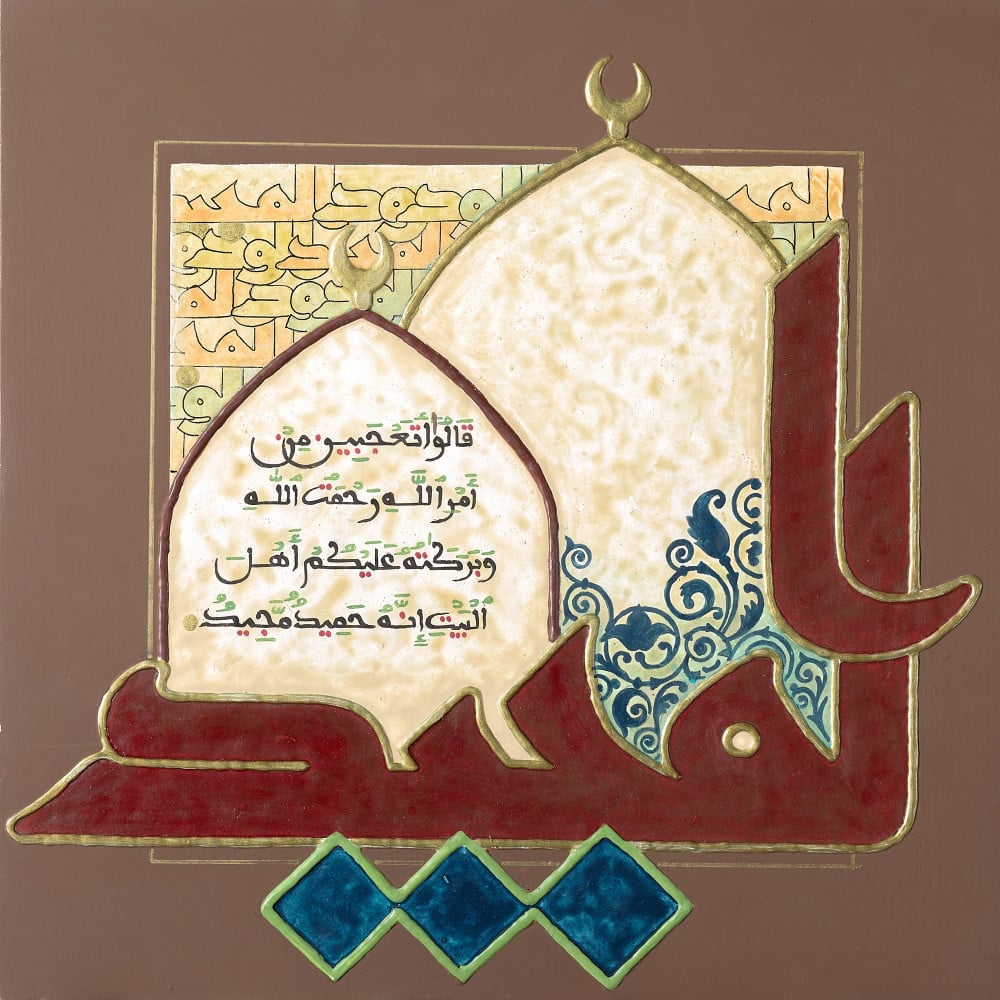 قَالُوٓا۟ أَتَعْجَبِينَ مِنْ
أَمْرِ ٱللَّهِ رَحْمَتُ ٱللَّهِ
وَبَرَكَٰتُهُۥ عَلَيْكُمْ أَهْلَ
ٱلْبَيْتِ إِنَّهُۥ حَمِيدٌ مَّجِيدٌ
المجيد